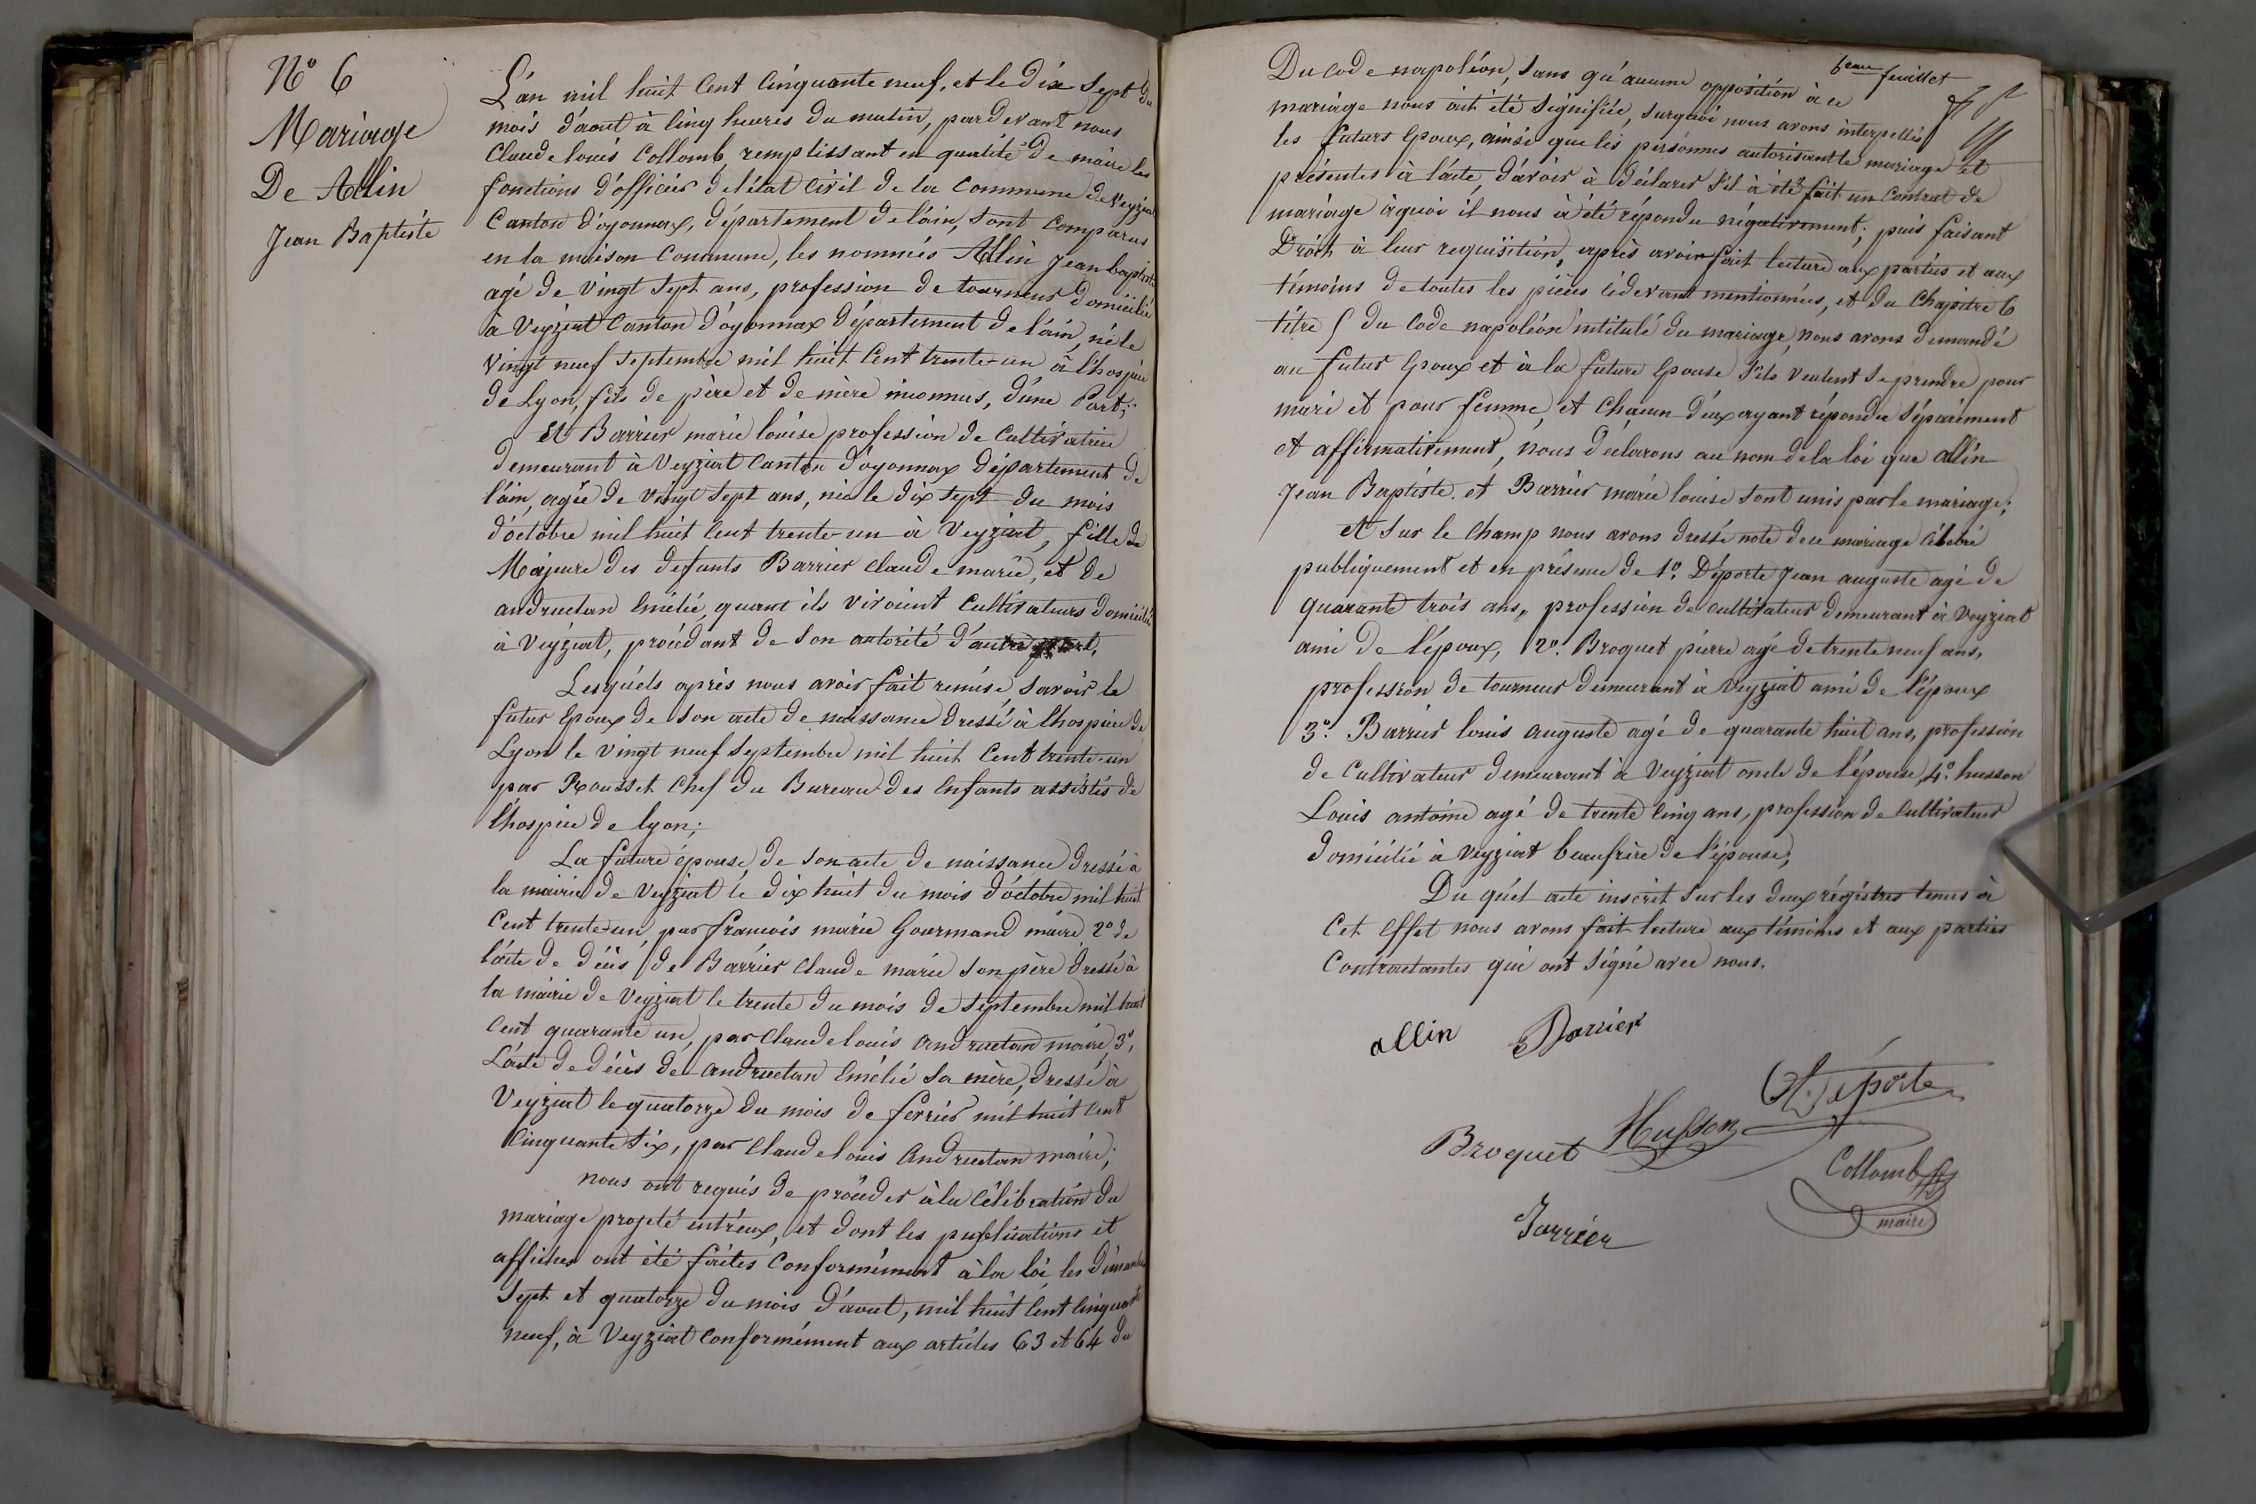 N° 6
Mariage
De Allin
Jean Baptiste
L'an mil huit Cent Cinquante neuf, et le Dix Sept du
mois d'aout à Cinq heures du matin, pardevant nous
Claude louis Collomb, remplissant en qualité de maire les
fonctions d'officier de l'état Civil de la Commune de Veyziat
Canton d'oyonnax, département de l'ain, sont Comparus
en la maison Commune, les nommés Allin Jean baptiste
agé de vingt Sept ans, profession de tourneur domicilié
à Veyziat Canton d'oyonnax département de l'ain, né le
vingt neuf septembre mil huit Cent trente-un à l'hospice
de Lyon, fils de père et de mère inconnus, d'une Part;
Et Barrier marie louise profession de Cultivatrice
demeurant à Veyziat Canton d'oyonnax département de
l'ain, agée de vingt sept ans, née le dix sept du mois
d'octobre mil huit Cent trente-un à Veyziat, fille de
Majeure des defunts Barrier Claude marie, et de
andruetan Emélie, quant ils vivoient Cultivateurs domiciliés
à Veyziat, procédant de son autorité d'autre part.
Lesquels après nous avoir fait remise, savoir le
futur Epoux de son acte de naissance dressé à l'hospice de
Lyon le vingt neuf Septembre mil huit Cent trente-un
par Rousset Chef du Bureau des Enfants assistés de
l'hospice de lyon;
La future épouse, de son acte de naissance dressé à
la mairie de Veyziat le dix huit du mois d'octobre mil huit
Cent trente-un par francois marie Gourmand maire, 2° de
l'acte de décès de Barrier Claude marie son père dressé à
la mairie de Veyziat le trente du mois de Septembre mil huit
Cent quarante un, par Claude louis andruetan maire, 3°,
L'acte de décès de andruetan Emélie sa mère, dressé à
Veyziat le quatorze du mois de fevrier mil huit Cent
Cinquante six, par Claude louis Andruetan maire;
nous ont requis de procéder à la Célébration du
mariage projeté entr'eux, et dont les publications et
affiches ont été faites Conformément à la loi, les dimanches
Sept et quatorze du mois d'aout, mil huit Cent Cinquante
neuf, à Veyziat Conformément aux articles 63 et 64 du
6eme feuillet
Du Code napoléon, sans qu'aucune opposition à ce
mariage nous ait été signifiée, surquoi nous avons interpellés
les futurs Epoux, ainsi que les personnes autorisant le mariage et
présentes à l'acte, d'avoir à déclarer s'il à été fait un Contrat de
mariage à quoi il nous à été répondu négativement; puis faisant
Droit à leur requisition, après avoir fait lecture aux parties et aux
témoins de toutes les pièces cidevant mentionnées, et du Chapitre 6
titre 5 du Code napoléon intitulé du mariage, nous avons demandé
au futur Epoux et à la future Epouse s'ils veulent se prendre pour
mari et pour femme, et Chacun d'eux ayant répondu séparément
et affirmativement, nous declarons au nom de la loi que allin
Jean Baptiste et Barrier marie louise sont unis par le mariage;
Et sur le Champ nous avons dressé note de ce mariage Célébré
publiquement et en présence de 1° Déporte Jean auguste agé de
quarante trois ans, profession de cultivateur demeurant à Veyziat
ami de l'époux, 2° Broquet pierre agé de trente neuf ans,
profession de tourneur demeurant à Veyziat ami de l'époux
3° Barrier louis auguste agé de quarante huit ans, profession
de Cultivateur demeurant à Veyziat oncle de l'épouse, 4° husson
Louis antoine agé de trente Cinq ans, profession de Cultivateur
domicilié à Veyziat beaufrère de l'épouse,
Du quel acte inscrit sur les deux régistres tenus à
Cet Effet nous avons fait lecture aux témoins et aux parties
Contractantes qui ont signé avec nous.
allin Barrier
A. Déporte
Broquet Husson
Collomb
maire
Barrier